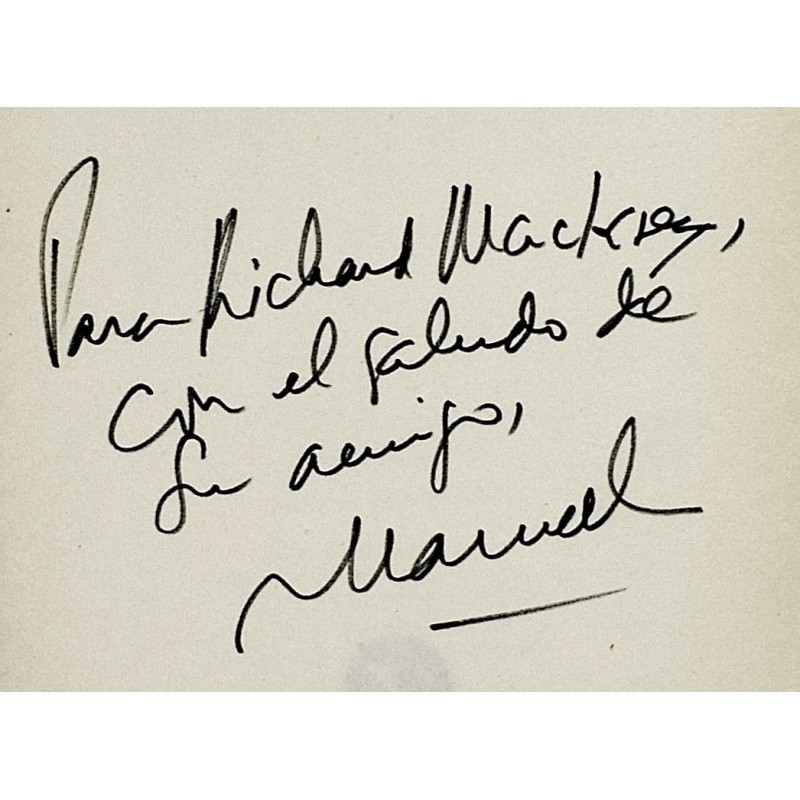 Para Richard Macksey,
con el saludo de
su amigo,
Manuel